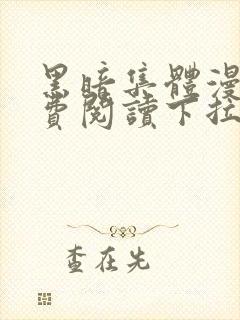 黑暗集體漫
費閱讀下拉
查在先